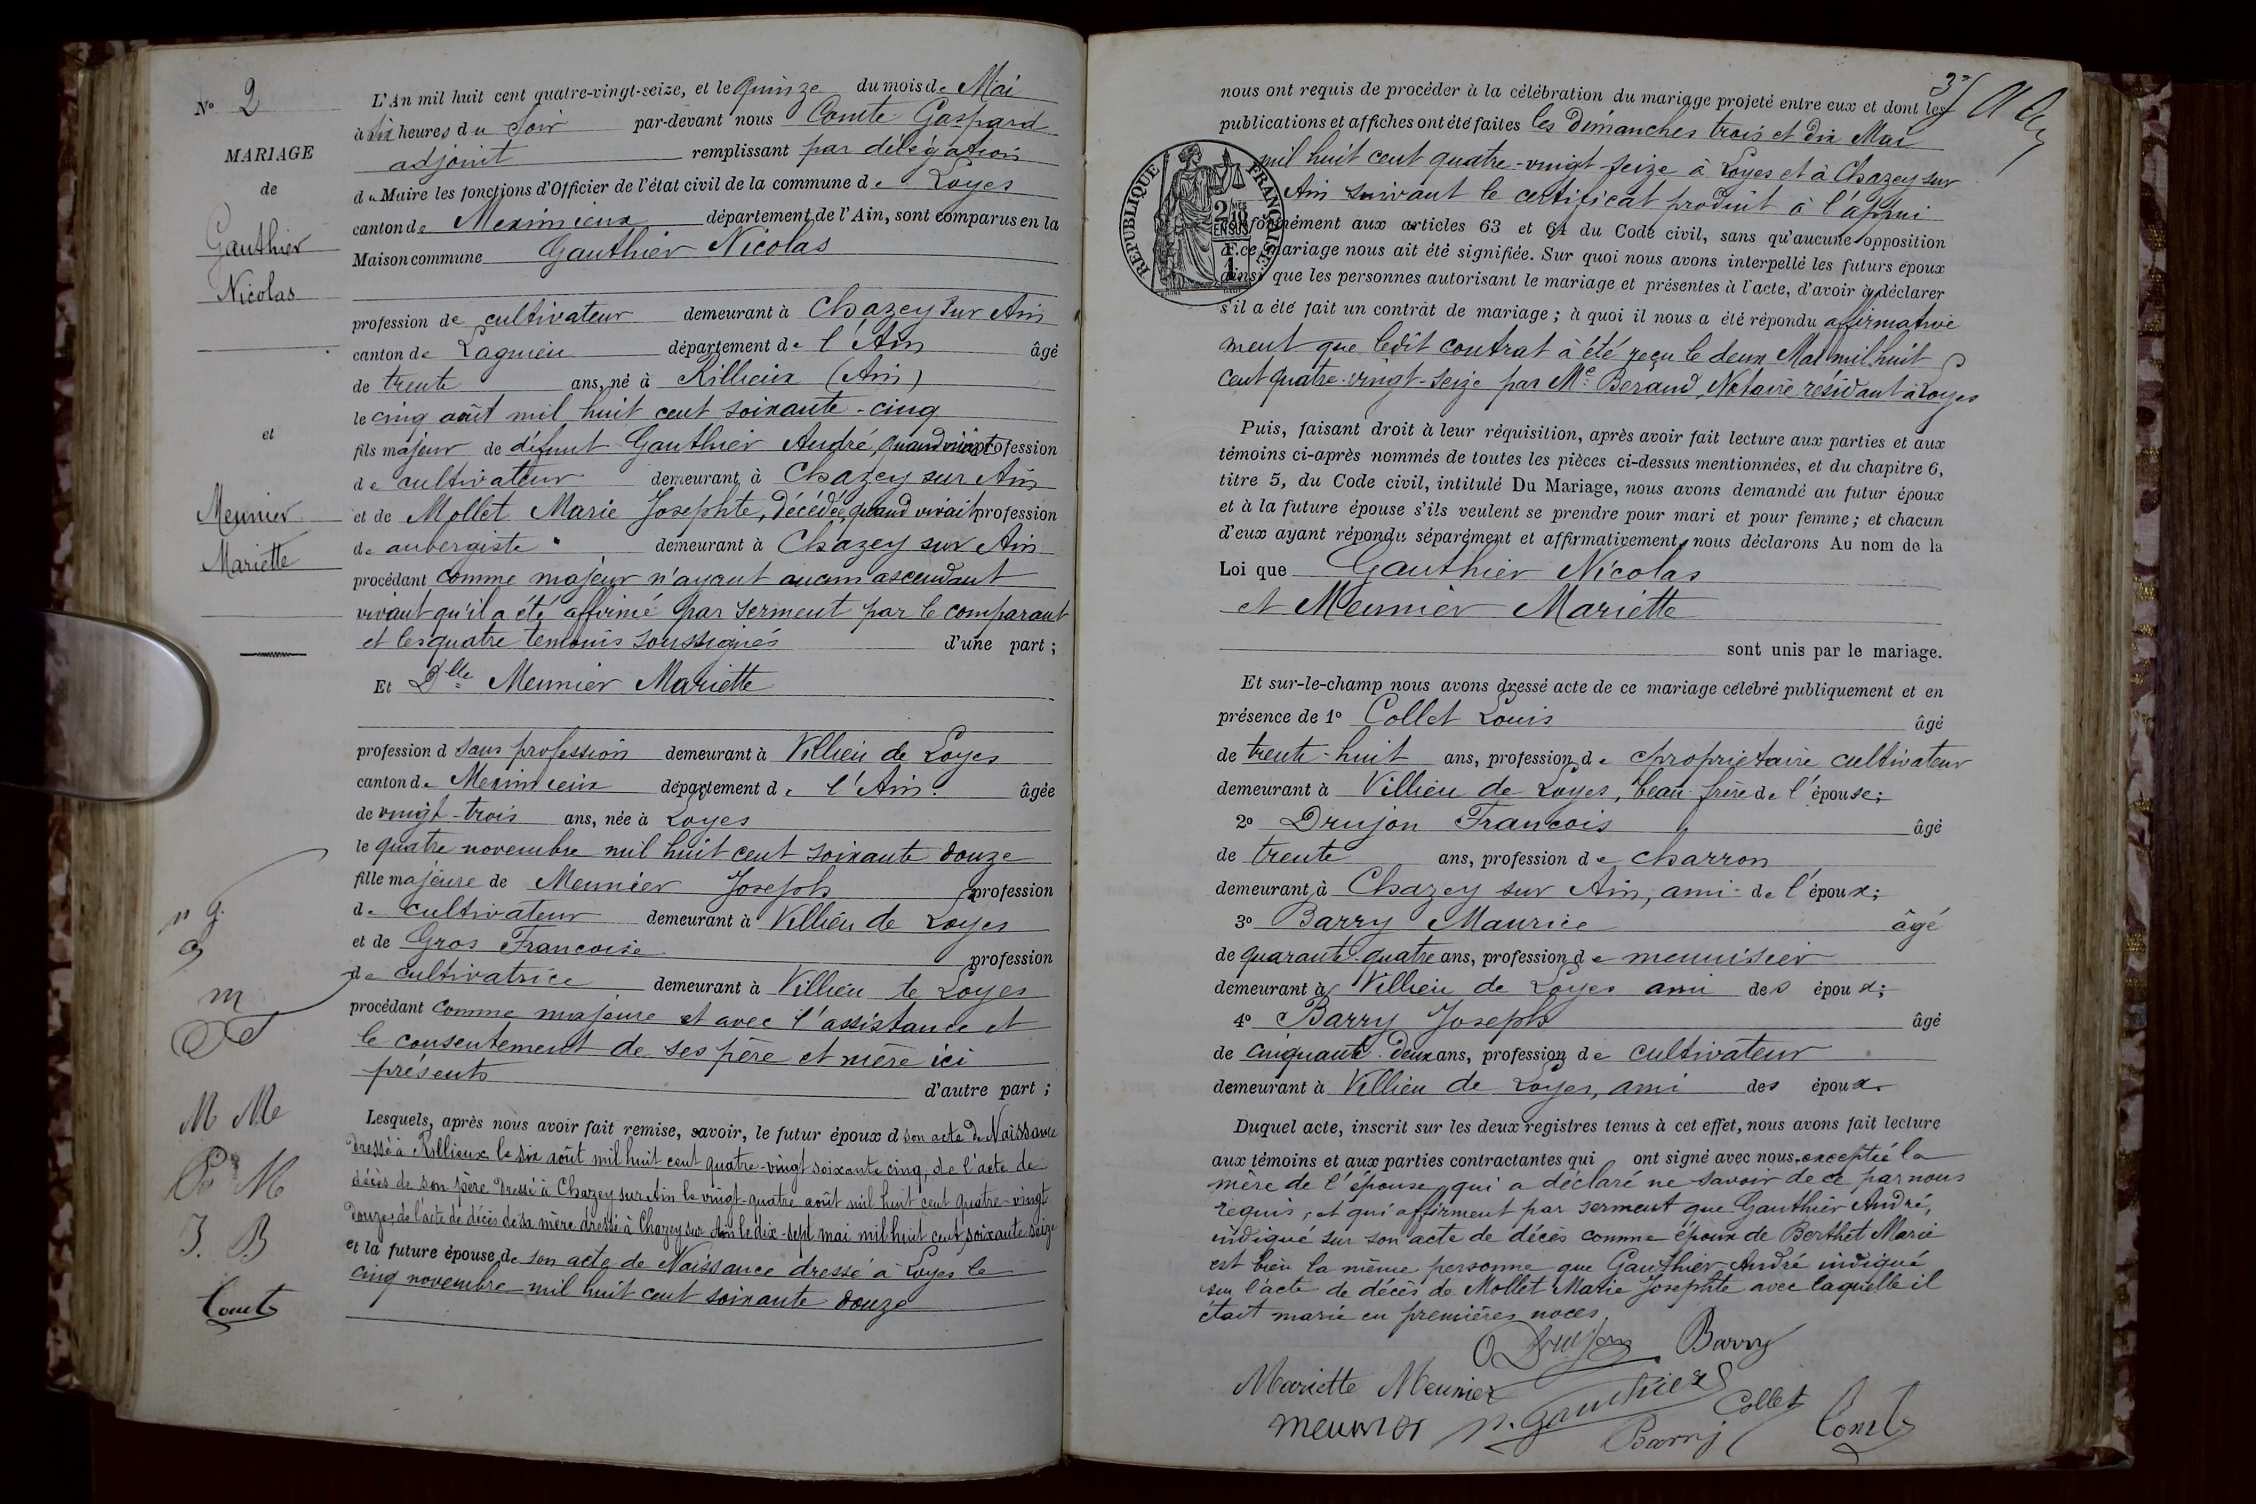 No 2
MARIAGE
de
Gauthier
Nicolas
et
Meunier
Mariette
L'An mil huit cent quatre-vingt-seize, et le quinze du mois de Mai
à six heures du soir par-devant nous Comte Gaspard
adjoint remplissant par délégation
du Maire les fonctions d'Officier de l'état civil de la commune de Loyes
canton de Meximieux département de l'Ain, sont comparus en la
Maison commune Gauthier Nicolas
profession de cultivateur demeurant à Chazey sur Ain
canton de Lagnieu département de l'Ain âgé
de trente ans, né à Rillieux (Ain)
le cinq août mil huit cent soixante-cinq
fils majeur de défunt Gauthier André, quand vivait profession
de cultivateur demeurant à Chazey sur Ain
et de Mollet Marie Josephte, décédée, quand vivait profession
de aubergiste demeurant à Chazey sur Ain
procédant comme majeur n'ayant aucun ascendant
vivant qu'il a été affirmé par serment par le comparant
et les quatre temoins soussignés d'une part ;
Et Dlle Meunier Mariette
profession d sans profession demeurant à Villieu de Loyes
canton de Meximieux département de l'Ain. âgée
de vingt-trois ans, née à Loyes
le quatre novembre mil huit cent soixante douze
fille majeure de Meunier Joseph profession
de cultivateur demeurant à Villieu de Loyes
et de Gros Francoise profession
de cultivatrice demeurant à Villieu de Loyes
procédant comme majeure et avec l'assistance et
le consentement de ses père et mère ici
présents d'autre part ;
Lesquels, après nous avoir fait remise, savoir, le futur époux d son acte de Naissance
dressé à Rillieux le six août mil huit cent quatre-vingt soixante cinq, de l'acte de
décès de son père dressé à Chazey sur Ain le vingt-quatre août mil huit cent quatre-vingt
douze, de l'acte de décès de sa mère dressé à Chazey sur Ain le dix-sept mai mil huit cent soixante seize
et la future épouse de son acte de Naissance dressé à Loyes le
cinq novembre mil huit cent soixante douze
n g.
G
m
M Me
M
J. B
Comte
3
nous ont requis de procéder à la célébration du mariage projeté entre eux et dont les
publications et affiches ont été faites les dimanches trois et dix Mai
mil huit cent quatre-vingt-seize à Loyes et à Chazey sur
Ain suivant le certificat produit à l'appui
RÉPUBLIQUE FRANÇAISE
conformément aux articles 63 et 64 du Code civil, sans qu'aucune opposition
à ce mariage nous ait été signifiée. Sur quoi nous avons interpellé les futurs époux
ainsi que les personnes autorisant le mariage et présentes à l'acte, d'avoir à déclarer
s'il a été fait un contrat de mariage ; à quoi il nous a été répondu affirmative
ment que ledit contrat à été reçu le deux Mai mil huit
cent quatre-vingt-seize par Me Beraud, Notaire résidant à Loyes
Puis, faisant droit à leur réquisition, après avoir fait lecture aux parties et aux
témoins ci-après nommés de toutes les pièces ci-dessus mentionnées, et du chapitre 6,
titre 5, du Code civil, intitulé Du Mariage, nous avons demandé au futur époux
et à la future épouse s'ils veulent se prendre pour mari et pour femme ; et chacun
d'eux ayant répondu séparément et affirmativement, nous déclarons Au nom de la
Loi que Gauthier Nicolas
et Meunier Mariette
sont unis par le mariage.
Et sur-le-champ nous avons dressé acte de ce mariage célébré publiquement et en
présence de 1o Collet Louis âgé
de trente-huit ans, profession de propriétaire cultivateur
demeurant à Villieu de Loyes, beau frère de l'épouse ;
2o Drujon Francois âgé
de trente ans, profession de charron
demeurant à Chazey sur Ain, ami de l'époux ;
3o Barry Maurice âgé
de quarante-quatre ans, profession de menuisier
demeurant à Villieu de Loyes ami des époux ;
4o Barry Joseph âgé
de cinquante-deux ans, profession de cultivateur
demeurant à Villieu de Loyes, ami des époux.
Duquel acte, inscrit sur les deux registres tenus à cet effet, nous avons fait lecture
aux témoins et aux parties contractantes qui ont signé avec nous, exceptée la
mère de l'épouse, qui a déclaré ne savoir de ce par nous
requis, et qui affirment par serment que Gauthier André,
indiqué sur son acte de décès comme époux de Berthet Marie
est bien la même personne que Gauthier André indiqué
sur l'acte de décès de Mollet Marie Josephte avec laquelle il
était marié en premières noces
Drujon Barry
Mariette Meunier n. Gauthier Collet
meunier Barry Comte